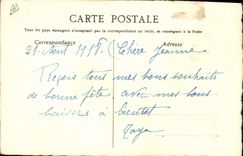 CARTE POSTALE
Tous les pays étrangers n'acceptent pas la correspondance au recto, se renseigner à la Poste
Correspondance
Adresse
21 Août 191
Chère Jeanne
Reçois tous mes bons souhaits
de bonne fête avec mes bons
baisers à bientôt